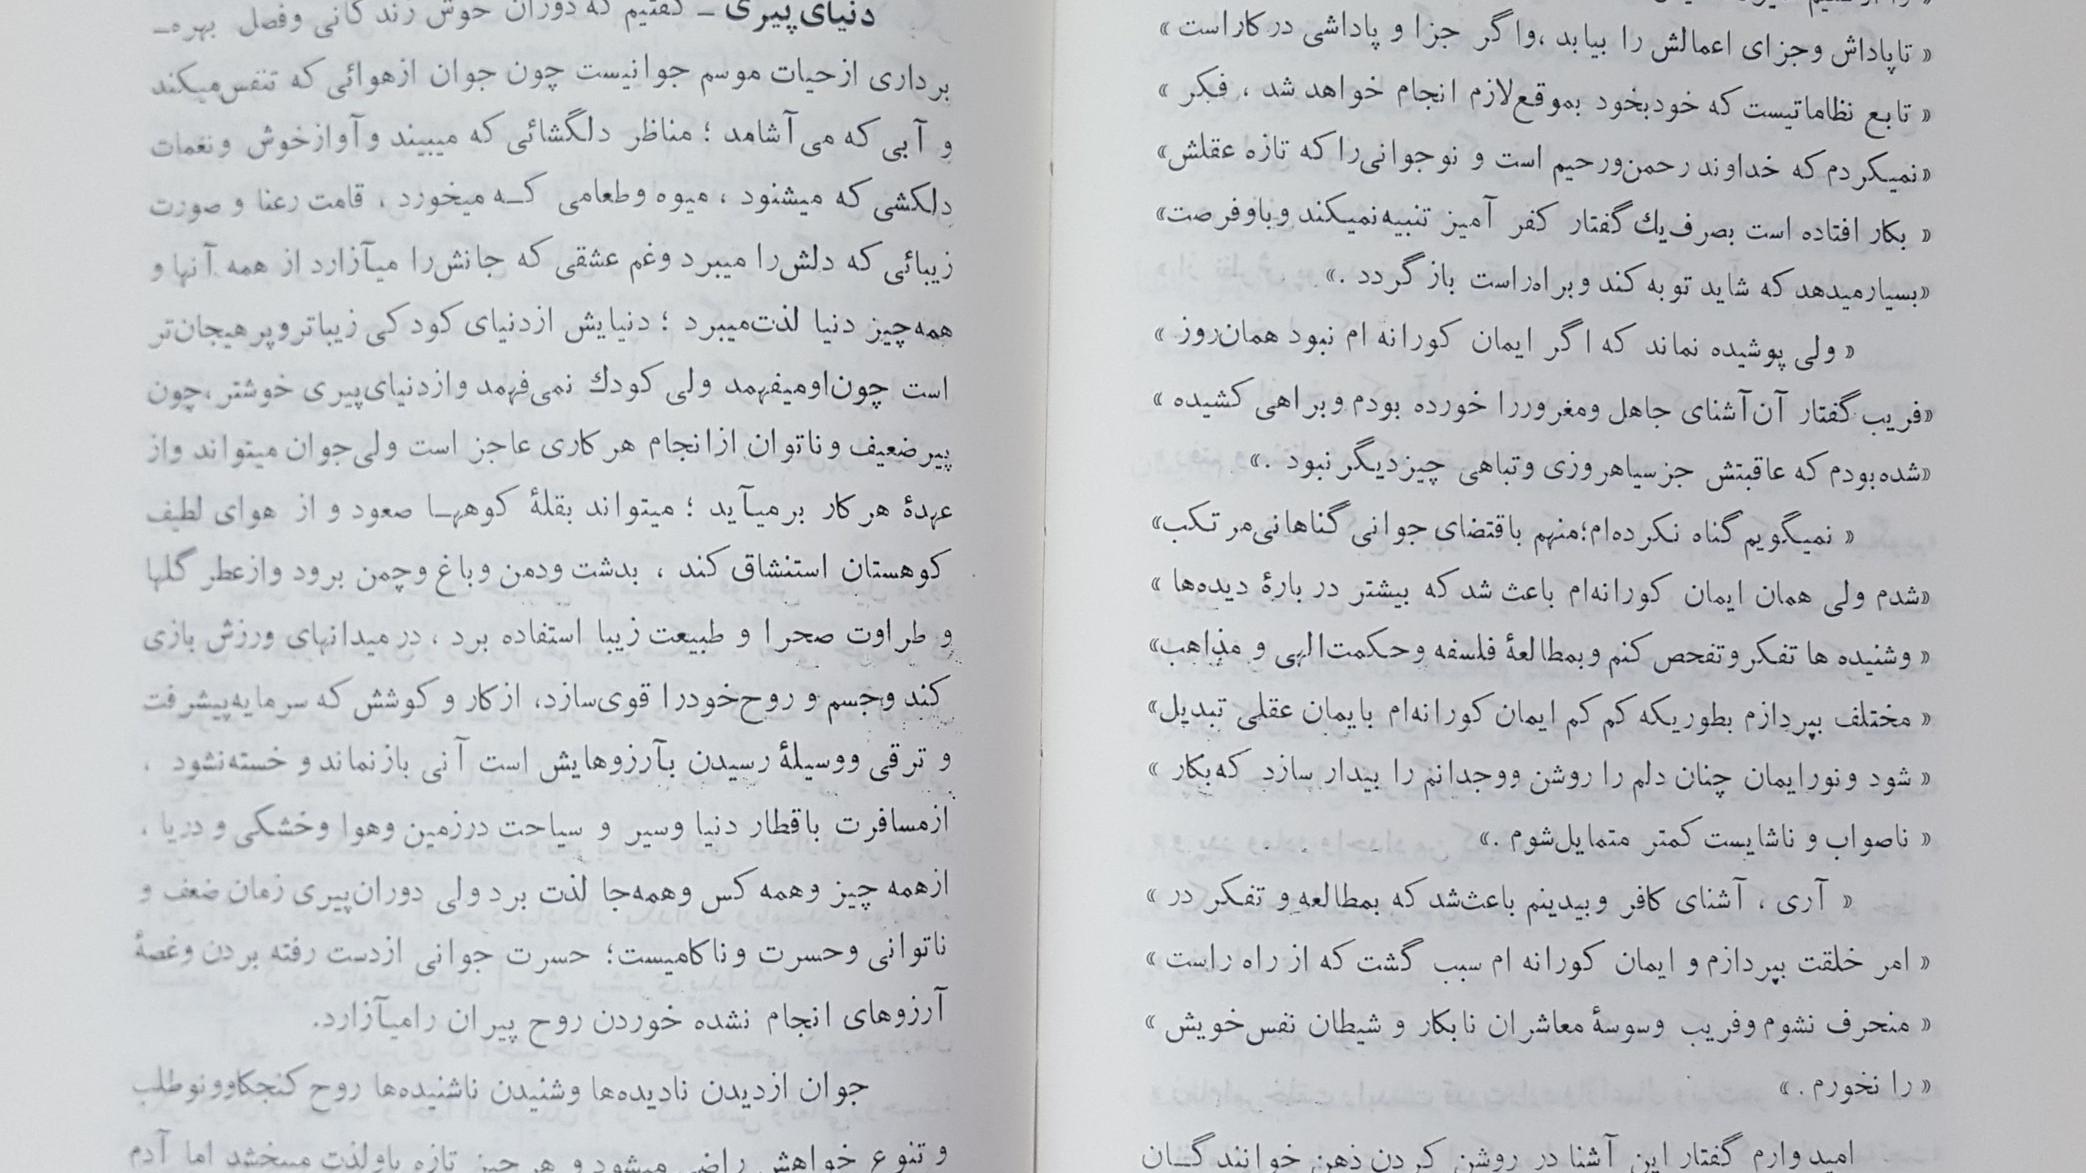 « تاپاداش وجزای اعمالش را بیابد ،واگر جزا و پاداشی درکاراست »
« تابع نظاماتیست که خودبخود بموقع‌لازم انجام خواهد شد ، فکر »
«نمیکردم که خداوند رحمن‌ورحیم است و نوجوانی‌را که تازه عقلش»
« بکار افتاده است بصرف‌یك گفتار کفر آمیز تنبیه‌نمیکند وباوفرصت»
«بسیارمیدهد که شاید توبه کند وبراه‌راست بازگردد .»
« ولی پوشیده نماند که اگر ایمان کورانه ام نبود همان‌روز »
«فریب گفتار آن‌آشنای جاهل ومغروررا خورده بودم وبراهی کشیده »
«شده‌بودم که عاقبتش جزسیاهروزی وتباهی چیزدیگر نبود .»
« نمیگویم گناه نکرده‌ام؛منهم باقتضای جوانی گناهانی‌مرتکب»
«شدم ولی همان ایمان کورانه‌ام باعث شد که بیشتر در بارهٔ دیده‌ها »
« وشنیده ها تفکروتفحص کنم وبمطالعهٔ فلسفه وحکمت‌الهی و مذاهب»
« مختلف بپردازم بطوریکه کم کم ایمان کورانه‌ام بایمان عقلی تبدیل»
« شود ونورایمان چنان دلم را روشن ووجدانم را بیدار سازد که‌بکار »
« ناصواب و ناشایست کمتر متمایل‌شوم .»
« آری ، آشنای کافر وبیدینم باعث‌شد که بمطالعه‌و تفکر در »
« امر خلقت بپردازم و ایمان کورانه ام سبب گشت که از راه راست »
« منحرف نشوم وفریب وسوسهٔ معاشران نابکار و شیطان نفس‌خویش »
« را نخورم .»
امیدوارم گفتار این آشنا در روشن کردن ذهن خوانندگـان
دنیای‌پیری ـ گفتیم که دوران خوش زندگانی وفصل بهره‌ـ
برداری ازحیات موسم جوانیست چون جوان ازهوائی که تنفس‌میکند
و آبی که می‌آشامد ؛ مناظر دلگشائی که میبیند وآوازخوش ونغمات
دلکشی که میشنود ، میوه وطعامی کـه میخورد ، قامت رعنا و صورت
زیبائی که دلش‌را میبرد وغم عشقی که جانش‌را میآزارد از همه آنها و
همه‌چیز دنیا لذت‌میبرد ؛ دنیایش ازدنیای کودکی زیباتروپرهیجان‌تر
است چون‌اومیفهمد ولی کودك نمی‌فهمد وازدنیای‌پیری خوشتر،چون
پیرضعیف وناتوان ازانجام هرکاری عاجز است ولی‌جوان میتواند واز
عهدهٔ هرکار برمیآید ؛ میتواند بقلهٔ کوههـا صعود و از هوای لطیف
کوهستان استنشاق کند ، بدشت ودمن وباغ وچمن برود وازعطر گلها
و طراوت صحرا و طبیعت زیبا استفاده برد ، درمیدانهای ورزش بازی
کند وجسم و روح‌خودرا قوی‌سازد، ازکار و کوشش که سرمایه‌پیشرفت
و ترقی ووسیلهٔ رسیدن بآرزوهایش است آنی بازنماند و خسته‌نشود ،
ازمسافرت باقطار دنیا وسیر و سیاحت درزمین وهوا وخشکی و دریا ،
ازهمه چیز وهمه کس وهمه‌جا لذت برد ولی دوران‌پیری زمان ضعف و
ناتوانی وحسرت وناکامیست؛ حسرت جوانی ازدست رفته بردن وغصهٔ
آرزوهای انجام نشده خوردن روح پیران رامیآزارد.
جوان ازدیدن نادیده‌ها وشنیدن ناشنیده‌ها روح کنجکاوونوطلب
و تنوع خواهش راضی میشود و هر چیز تازه باولذت میبخشد اما آدم